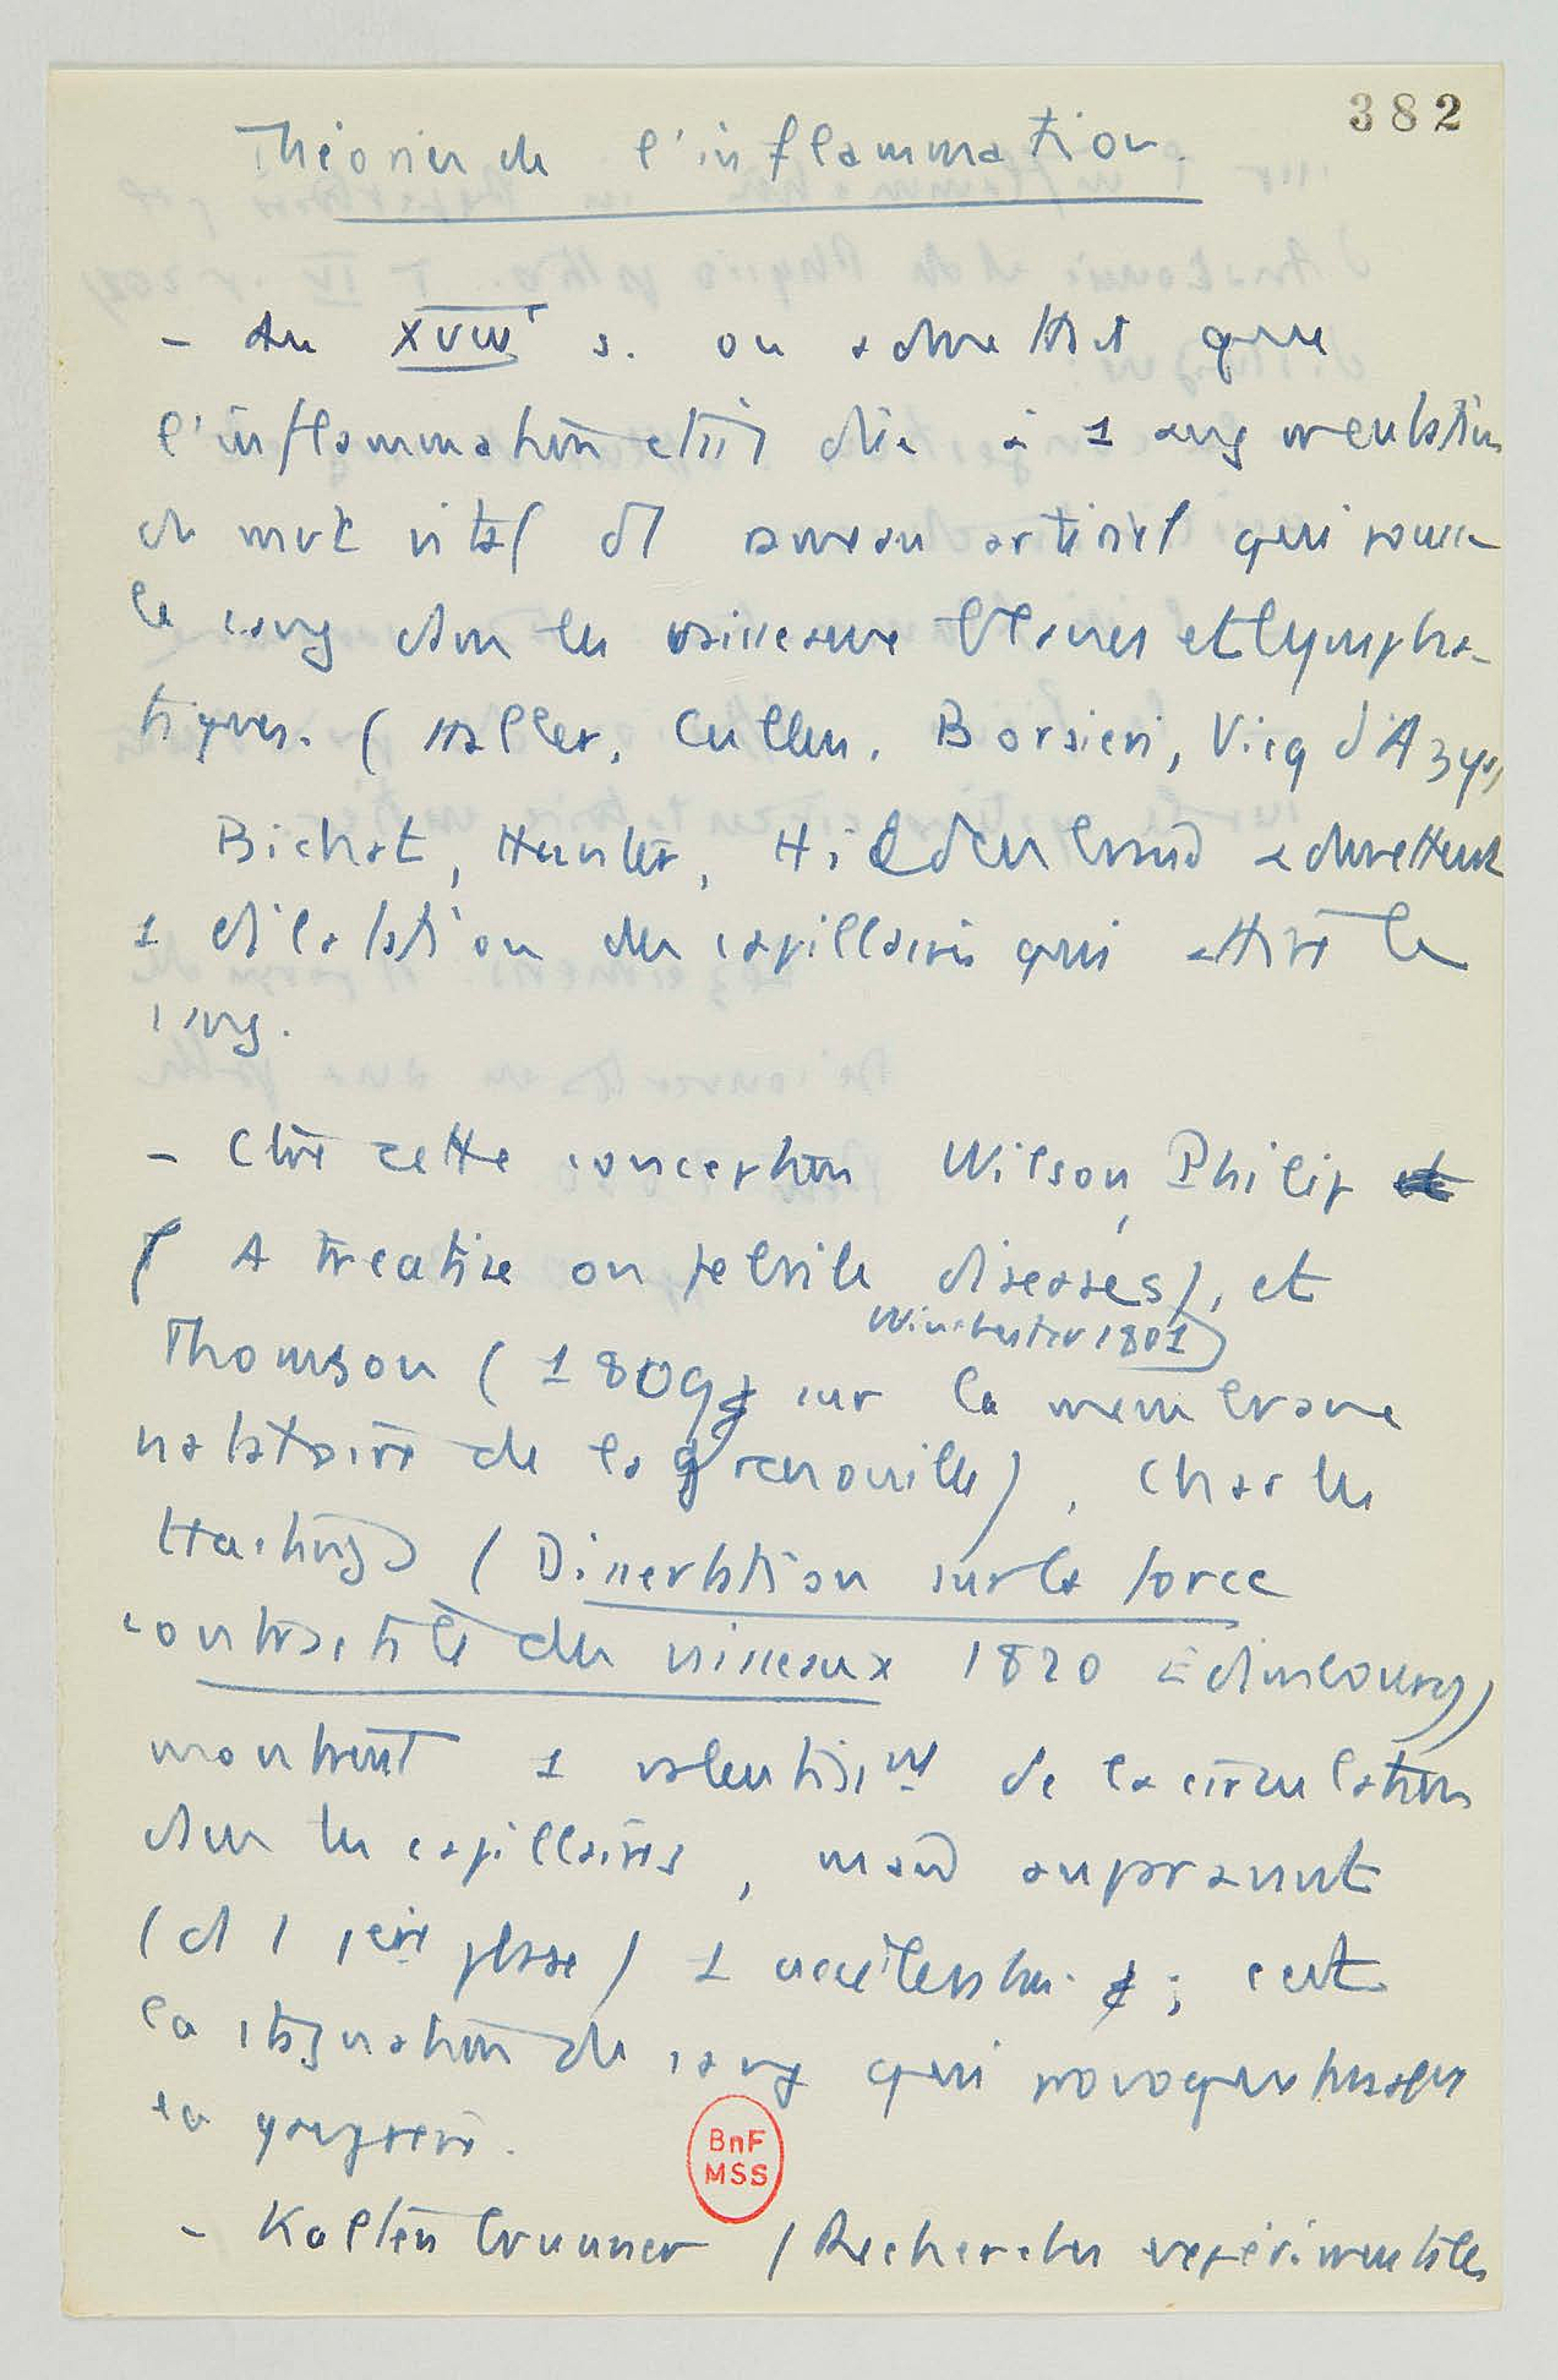 382
Théories de l'inflammation.
- Au XVIIIe s. on admettait que
l'inflammation était due à 1 augmentation
du mvt vital ds anneau artériel qui pousse
le sang dans les vaisseaux blancs et lympha-
tiques. (Haller, Cullen, Borsieri, Vicq d'Azyr,
Bichat, Hunter, Hildenbrand admettent
1 dilatation des capillaires qui attire le
sang.
- Ctre cette conception Wilson, Philip
( A treatise on febrile diseases), et
Winchester 1801)
Thomson (1809 sur la membrane
natatoire de la grenouille), Charles
Hastings (Dissertation sur la force
contractile des vaisseaux 1820 Edimbourg)
montrent 1 ralentissmt de la circulation
dans les capillaires, mais auparavant
(ds 1 1ère phase) 1 accélération ; c'est
la stagnation du sang qui provoque
la gangrène.
BnF
MSS
- Kaltenbrunner (Recherches expérimentales